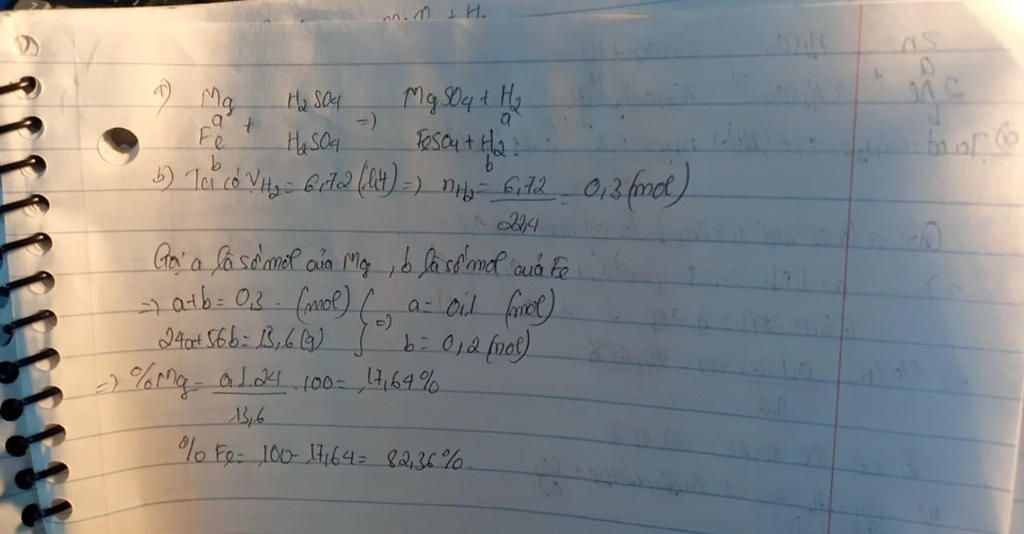 a) Mg H₂SO₄ MgSO₄ + H₂
a + => a
Fe H₂SO₄ FeSO₄ + H₂
b b
b) Ta có VH₂ = 6,72 (lít) => nH₂ = 6,72/22,4 = 0,3 (mol)
Gọi a là số mol của Mg, b là số mol của Fe
=> a+b = 0,3 (mol) } => a = 0,1 (mol)
24a+56b = 13,6 (g) b = 0,2 (mol)
=> %Mg = 0,1.24/13,6 .100 = 17,64%
% Fe = 100 - 17,64 = 82,36%